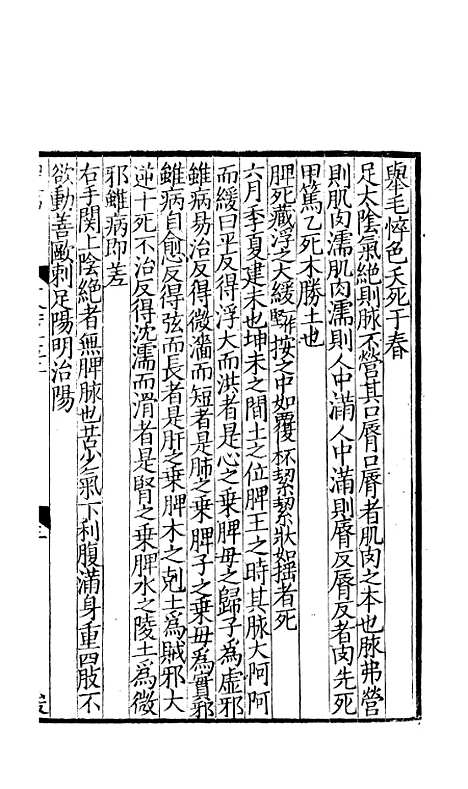 舉毛悴色夭死于春
足太陰氣絕則脉不營其口脣口脣者肌肉之本也脉弗營
則肌肉濡肌肉濡則人中滿人中滿則脣反脣反者肉先死
甲篤乙死木勝土也
脾死藏浮之大緩堅一作按之中如覆杯絜絜狀如揺者死
六月季夏建未也坤未之間土之位脾王之時其脉大阿阿
而緩曰平反得浮大而洪者是心之乗脾母之歸子為虛邪
雖病易治反得微濇而短者是肺之乗脾子之乗母為實邪
雖病自愈反得弦而長者是肝之乗脾木之剋土為賊邪大
逆十死不治反得沈濡而滑者是腎之乗脾水之陵土為微
邪雖病即差
右手関上陰絶者無脾脉也苦少氣下利腹滿身重四肢不
欲動善嘔刺足陽明治陽